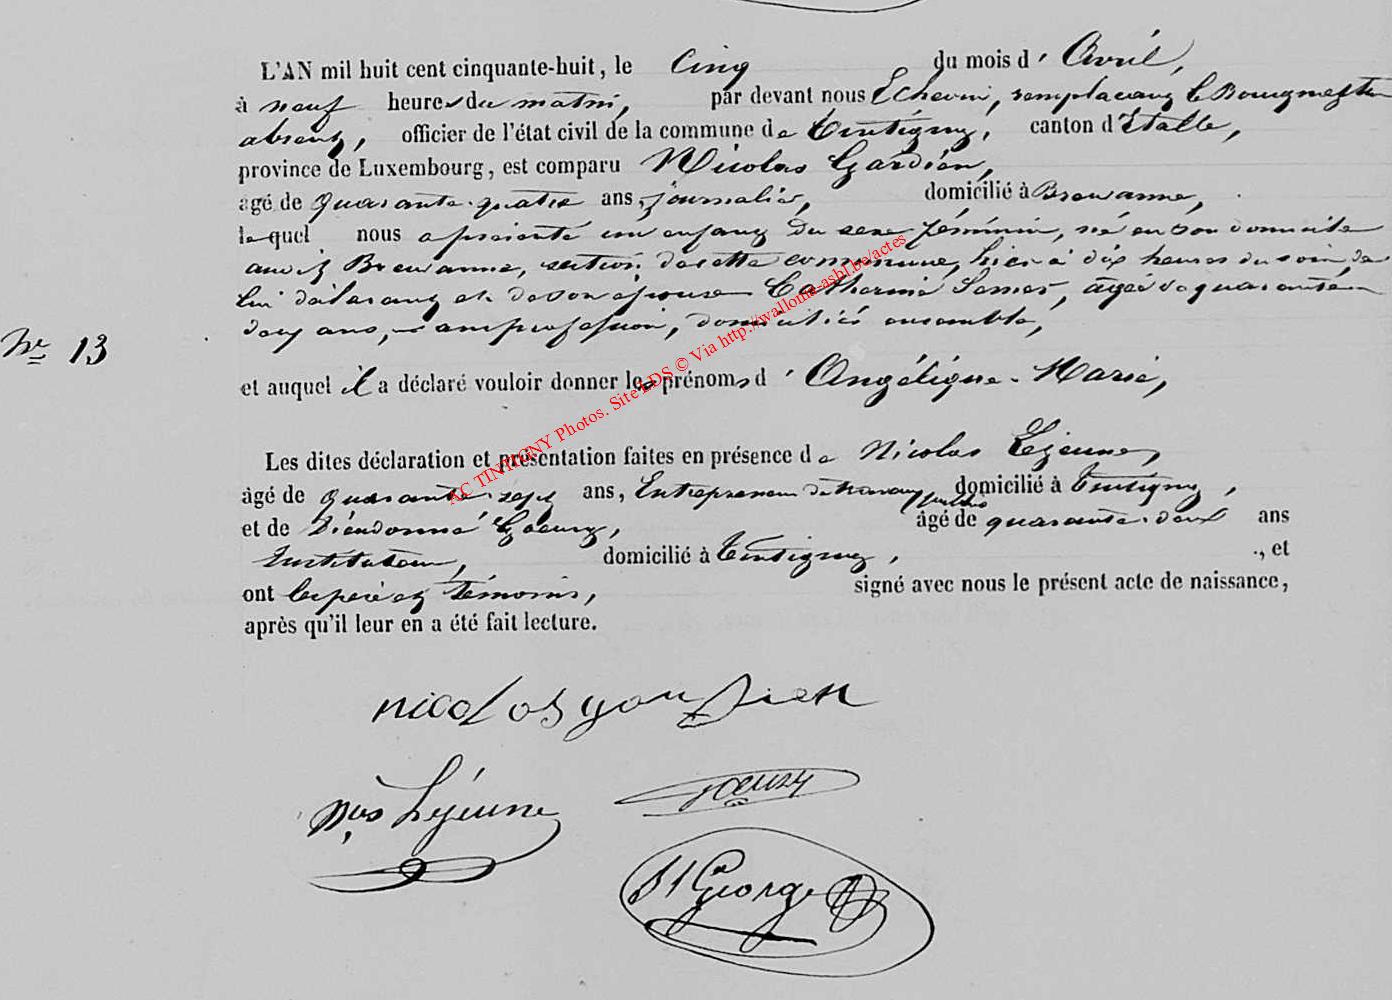 L'AN mil huit cent cinquante-huit, le Cinq du mois d' Avril,
à neuf heures du matin, par devant nous Echevin, remplaçant le Bourgmestre
absent, officier de l'état civil de la commune de Tintigny, canton d'Etalle,
province de Luxembourg, est comparu Nicolas Gardien,
agé de quarante-quatre ans, journalier, domicilié à Breuvanne,
lequel nous a présenté un enfant du sexe féminin, né en son domicile
audit Breuvanne, section de cette commune, hier à dix heures du soir, de
lui déclarant et de son épouse Catherine, âgée de quarante
deux ans, sans profession, domiciliés ensemble,
N° 13
et auquel il a déclaré vouloir donner les prénoms d' Angélique-Marie,
Les dites déclaration et présentation faites en présence de Nicolas Lejeune,
âgé de quarante-sept ans, Entrepreneur de travaux publics domicilié à Tintigny,
et de Dieudonné Goeury, âgé de quarante-deux ans
Instituteur, domicilié à Tintigny, ., et
ont les père et témoins, signé avec nous le présent acte de naissance,
après qu'il leur en a été fait lecture.
nicolos gourdien
Nas Lejeune
Goeury
St George
AC TINTIGNY Photos. Site LDS © Via http://wallonia-asbl.be/actes